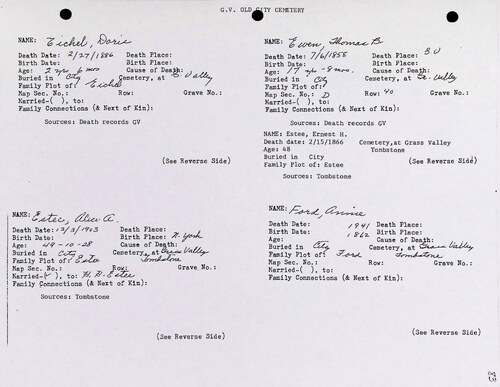 G.V. OLD CITY CEMETERY
NAME: Eichel, Doris
Death Date: 2/27/1886 Death Place:
Birth Date: Birth Place:
Age: 2 yrs 6 mos Cause of Death:
Buried in City Cemetery, at G. Valley
Family Plot of: Eichel
Map Sec. No.: Row: Grave No.:
Married-( ), to:
Family Connections (& Next of Kin):
Sources: Death records GV
(See Reverse Side)
NAME: Ewen, Thomas B.
Death Date: 7/6/1858 Death Place: G.V
Birth Date: Birth Place:
Age: 17 yrs - 8 mos. Cause of Death:
Buried in City Cemetery, at Gr. Valley
Family Plot of:
Map Sec. No.: D Row: 40 Grave No.:
Married-( ), to:
Family Connections (& Next of Kin):
Sources: Death records GV
NAME: Estee, Ernest H.
Death date: 2/15/1866 Cemetery, at Grass Valley
Age: 48 Tombstone
Buried in City
Family Plot of: Estee (See Reverse Side)
Sources: Tombstone
NAME: Estee, Alice A.
Death Date: 12/3/1903 Death Place:
Birth Date: Birth Place: N. York
Age: 49-10-28 Cause of Death:
Buried in City Cemetery, at Grass Valley
Family Plot of: Estee Tombstone
Map Sec. No.: Row: Grave No.:
Married-( ), to: H. N. Estee
Family Connections (& Next of Kin):
Sources: Tombstone
(See Reverse Side)
NAME: Ford, Annie
Death Date: 1941 Death Place:
Birth Date: 1862 Birth Place:
Age: Cause of Death:
Buried in City Cemetery, at Grass Valley
Family Plot of: Ford Tombstone
Map Sec. No.: Row: Grave No.:
Married-( ), to:
Family Connections (& Next of Kin):
(See Reverse Side)